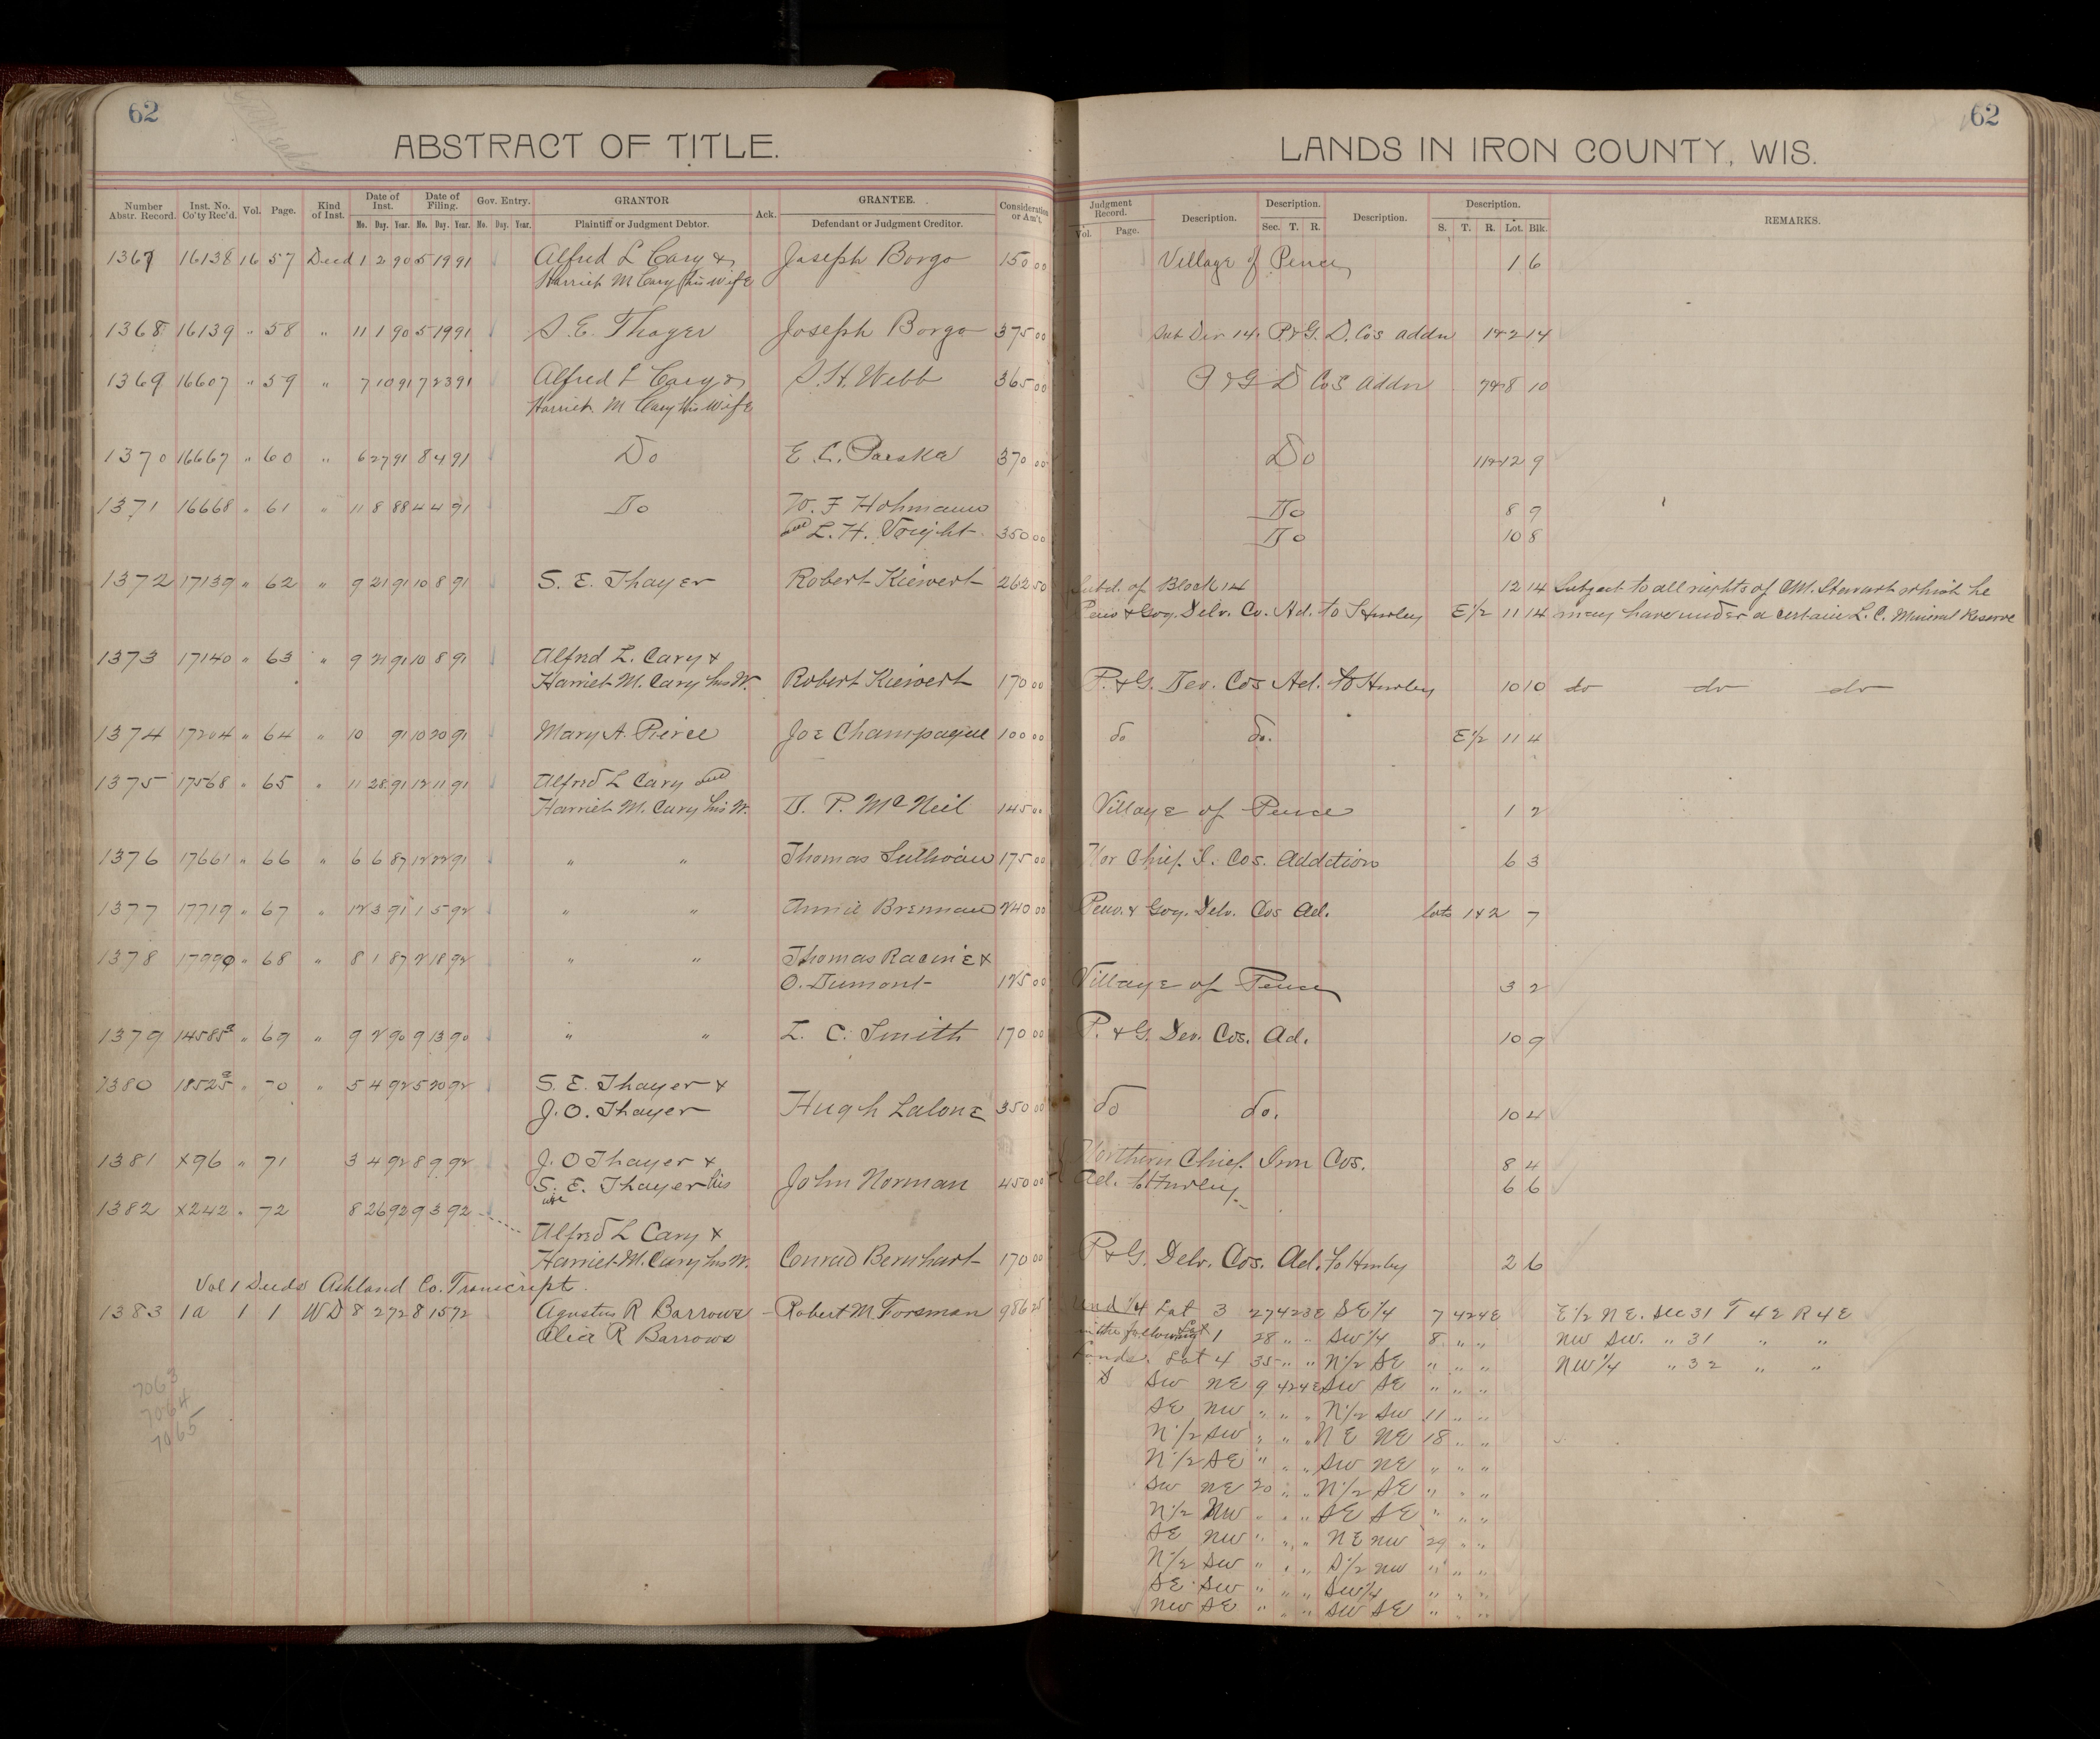 62
ABSTRACT OF TITLE.
Number Abstr. Record. Inst. No. Co'ty Rec'd. Vol. Page. Kind of Inst. Date of Inst. Date of Filing. Gov. Entry. GRANTOR Ack. GRANTEE. Consideration or Am't.
Mo. Day. Year. Mo. Day. Year. Mo. Day. Year. Plaintiff or Judgment Debtor. Defendant or Judgment Creditor.
1367 16138 16 57 Deed 1 2 90 5 19 91 Alfred L Cary & Joseph Borgo 150 00
Harriet M Cary his wife
1368 16139 " 58 " 11 1 90 5 19 91 S. E. Thayer Joseph Borgo 375 00
1369 16607 " 59 " 7 10 91 7 23 91 Alfred L Cary & S. H. Webb 365 00
Harriet M Cary his wife
1370 16667 " 60 " 6 27 91 8 4 91 Do E. C. 370 00
1371 16668 " 61 " 11 8 88 4 4 91 Do W. F Hohmann
and L. H. Voight 350 00
1372 17139 " 62 " 9 21 91 10 8 91 S. E. Thayer Robert Kiewert 262 50
1373 17140 " 63 " 9 21 91 10 8 91 Alfred L. Cary &
Harriet M. Cary his W. Robert Kiewert 170 00
1374 17204 " 64 " 10 91 10 20 91 Mary A. Pierce Joe Champagne 100 00
1375 17568 " 65 " 11 28 91 12 11 91 Alfred L Cary and
Harriet M. Cary his W. D. P. McNeil 145 00
1376 17661 " 66 " 6 6 87 12 22 91 " " Thomas Sullivan 175 00
1377 17719 " 67 " 12 3 91 1 5 92 " " Annie Brennan 240 00
1378 17990 " 68 " 8 1 87 2 18 92 " " Thomas Racine &
O. Dumont 125 00
1379 14585a " 69 " 9 2 90 9 13 90 " " L. C. Smith 170 00
1380 18525a " 70 " 5 4 92 5 20 92 S. E. Thayer &
J. O. Thayer Hugh Lalone 350 00
1381 x96 " 71 3 4 92 8 9 92 J. O Thayer &
S. E. Thayer his John Norman 450 00
wife
1382 x242 " 72 8 26 92 9 3 92
Alfred L Cary &
Harriet M. Cary his W. Conrad Bernhart 170 00
Vol 1 Deeds Ashland Co. Transcript
1383 1a 1 1 WD 8 2 72 8 15 72 Agustus R Barrows - Robert M. Forsman 986 25
Alice R Barrows
7063
7064
7065
62
LANDS IN IRON COUNTY, WIS.
Judgment Record. Description. Description. Description. Description. REMARKS.
Vol. Page. Sec. T. R. S. T. R. Lot. Blk.
Village of Pence 1 6
Sub Div 14. P & G. D. Cos addn 1&2 14
P & G D Cos addn 7&8 10
Do 11&12 9
Do 8 9
Do 10 8
Subd. of Block 14 12 14 Subject to all rights of Stewart which he
Penn & Gog. Delv. Co. Ad. to Hurley E 1/2 11 14 may have under a certain L. C. Mineral Reserve
P. & G. Dev. Cos Ad. to Hurley 10 10 do do do
do do. E 1/2 11 4
Village of Pence 1 2
Nor Chief I. Cos. Addition 6 3
Penn. & Gog. Delv. Cos Ad. lots 1&2 7
Village of Pence 3 2
P. & G. Dev. Cos. Ad. 10 9
do do. 10 4
Northern Chief Iron Cos. 8 4
Ad. to Hurley 6 6
P & G. Delv. Cos. Ad. to Hurley 2 6
Und 1/4 Lot 3 27 42 3E SE 1/4 7 42 4E E 1/2 NE. Sec 31 T 42 R 4E
in the following Lot 1 28 " " SW 1/4 8 " " NW SW. " 31 " "
Lands. Lot 4 35 " " N 1/2 SE " " " NW 1/4 " 32 " "
SW NE 9 42 4E SW SE " " "
SE NW " " " N 1/2 SW 11 " "
N 1/2 SW " " " NE NE 18 " "
N 1/2 SE " " " SW NE " " "
SW NE 20 " " N 1/2 SE " " "
N 1/2 NW " " " SE SE " " "
SE NW " " " NE NW 29 " "
N 1/2 SW " " " S 1/2 NW " " "
SE SW " " " SW 1/4 " " "
NW SE " " " SW SE " " "